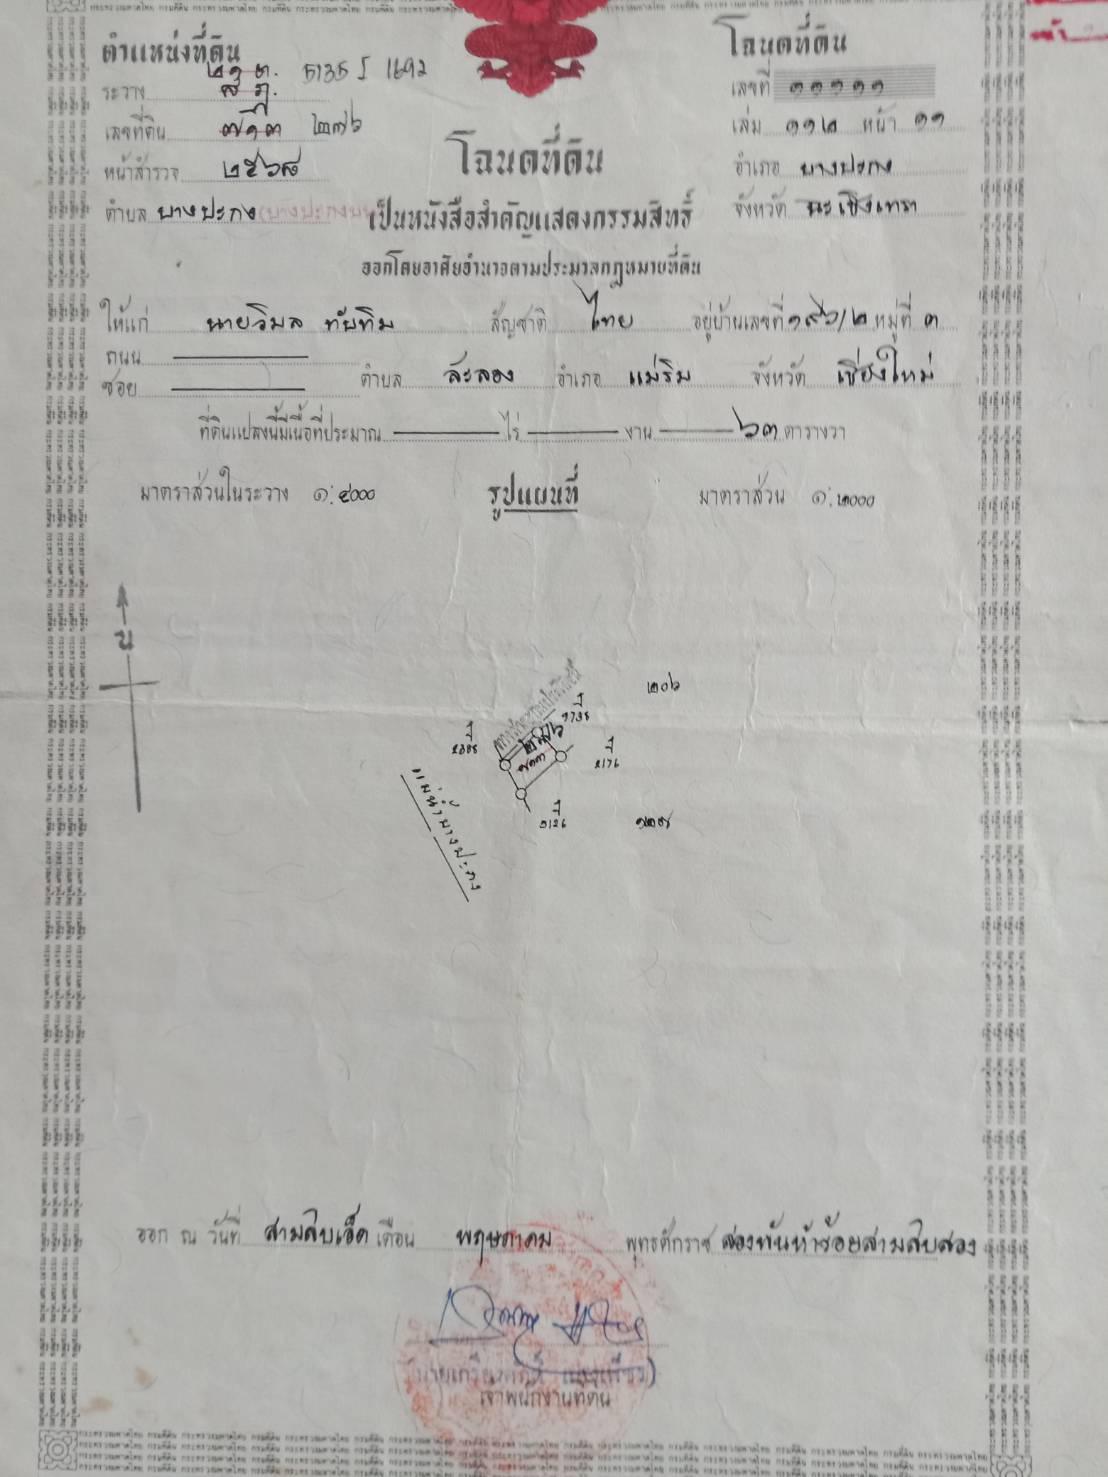 ตำแหน่งที่ดิน
โฉนดที่ดิน
ระวาง 5135 I 1692
เลขที่ ๑๑๑๑๑
เลขที่ดิน ๗๑๓ ๒๗๖
เล่ม ๑๑๒ หน้า ๑๑
หน้าสำรวจ ๒๕๖๘
โฉนดที่ดิน
อำเภอ บางปะกง
ตำบล บางปะกง
เป็นหนังสือสำคัญแสดงกรรมสิทธิ์
จังหวัด ฉะเชิงเทรา
ออกโดยอาศัยอำนาจตามประมวลกฎหมายที่ดิน
ให้แก่ นายวิมล ทับทิม สัญชาติ ไทย อยู่บ้านเลขที่ ๑๙๖/๒ หมู่ที่ ๓
ถนน
ซอย ตำบล สะลวง อำเภอ แม่ริม จังหวัด เชียงใหม่
ที่ดินแปลงนี้มีเนื้อที่ประมาณ ไร่ งาน ๖๓ ตารางวา
มาตราส่วนในระวาง ๑:๔๐๐๐
รูปแผนที่
มาตราส่วน ๑:๒๐๐๐
น
๒๐๖
๒๗๖
๗๑๓
แม่น้ำบางปะกง
ออก ณ วันที่ สามสิบเอ็ด เดือน พฤษภาคม พุทธศักราช สองพันห้าร้อยสามสิบสอง
เจ้าพนักงานที่ดิน